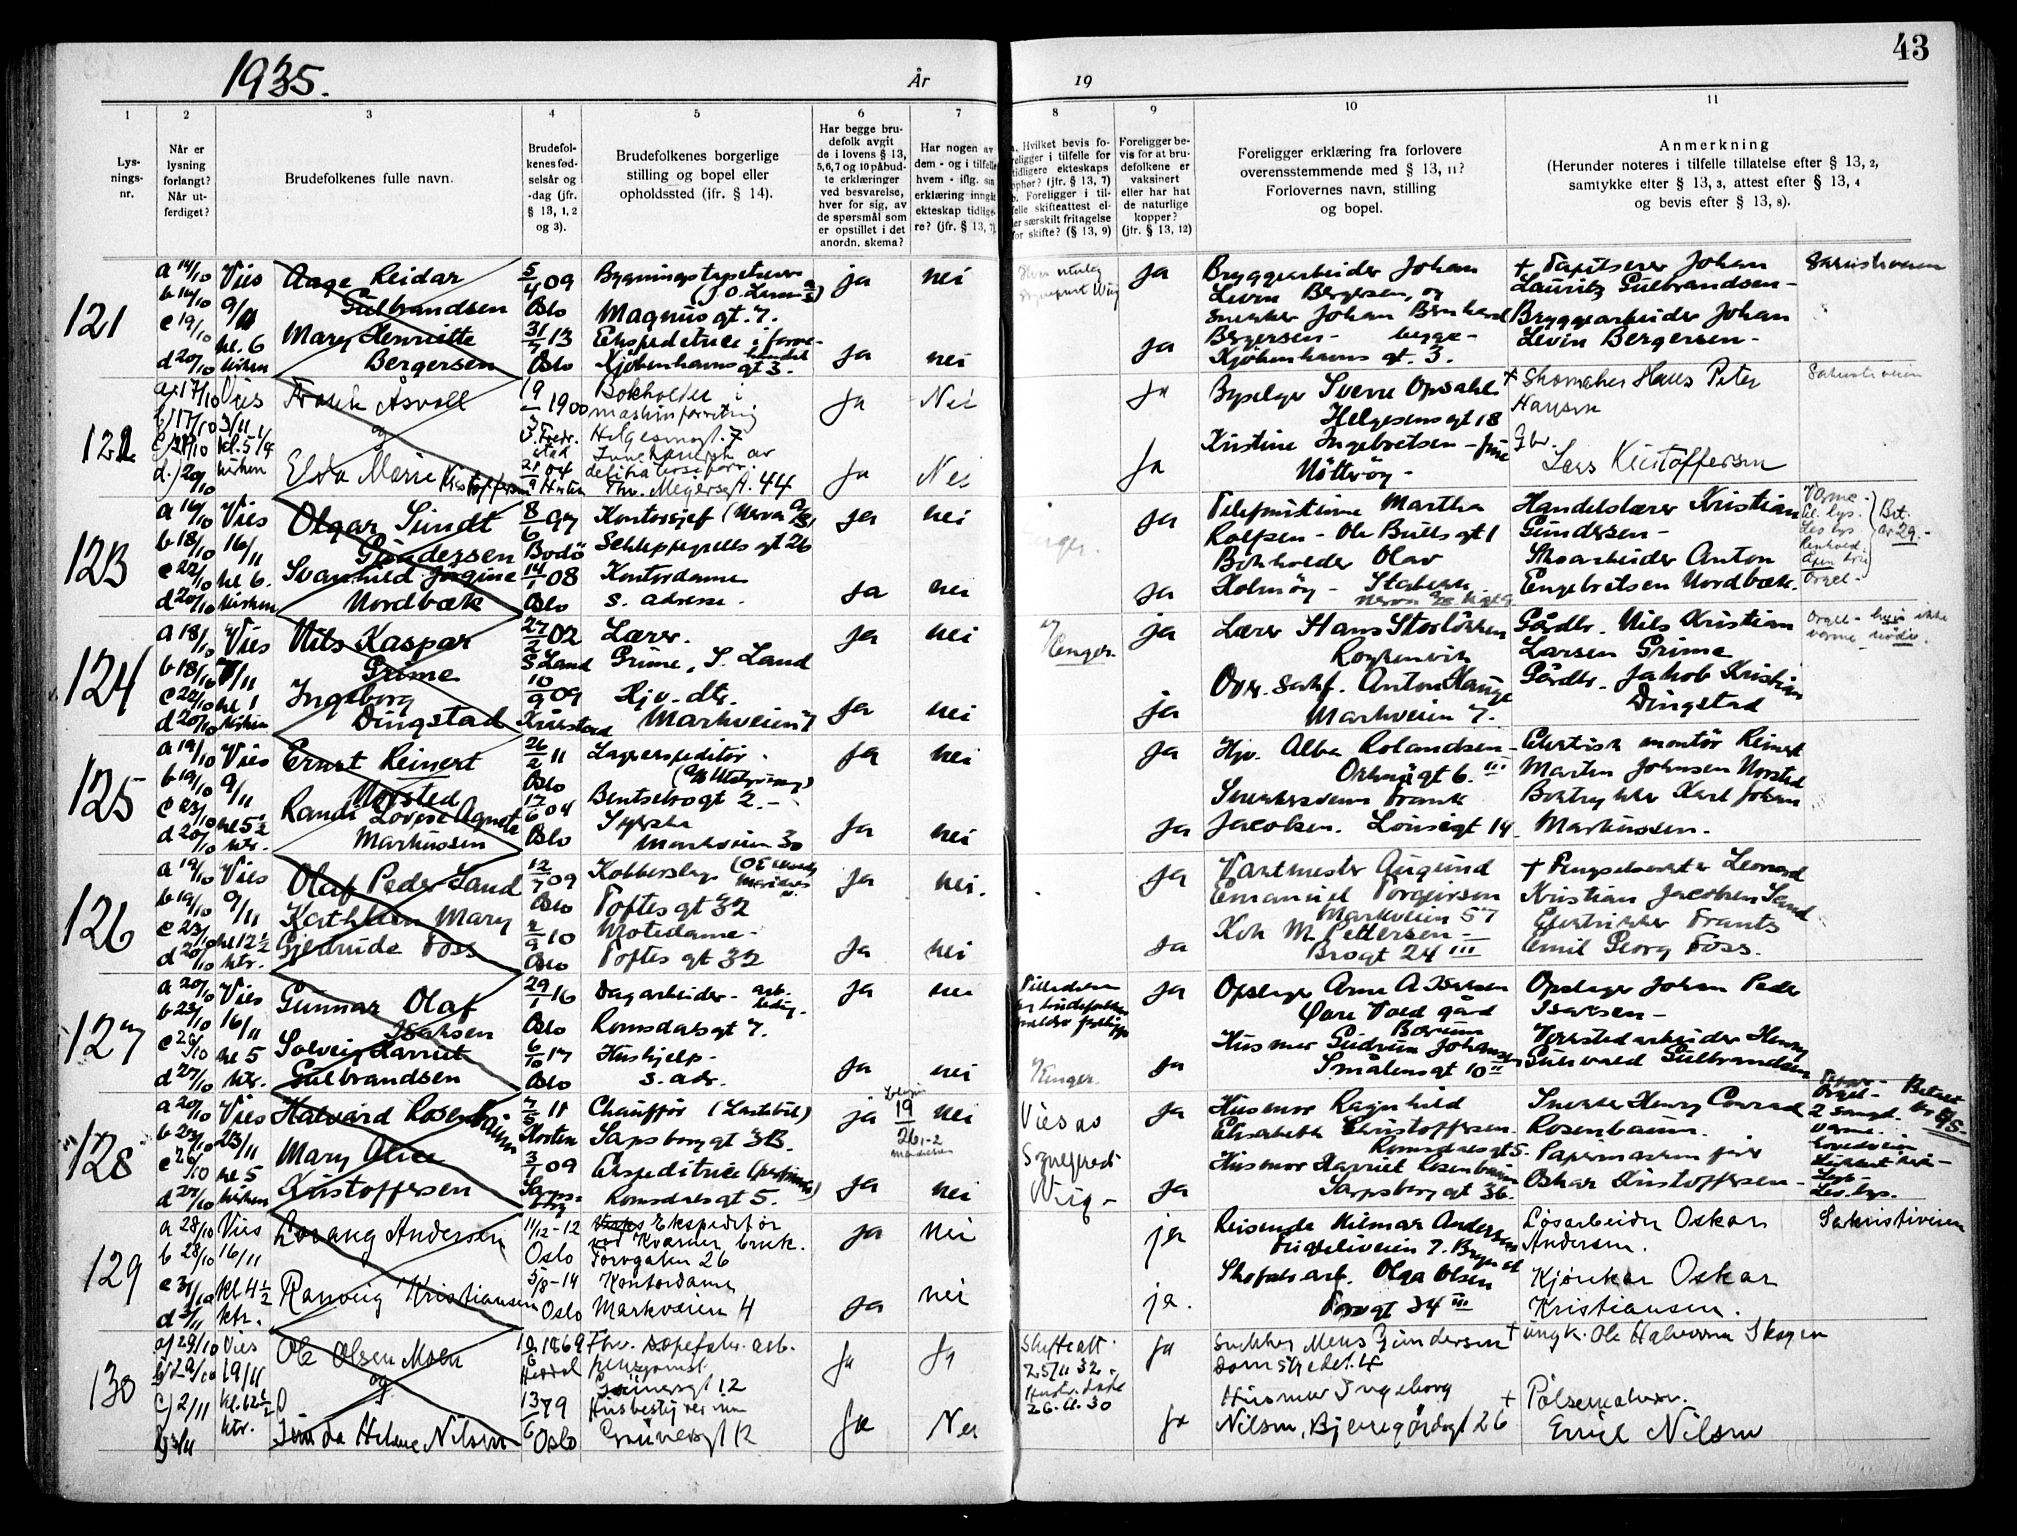 43
1935.
År
19
1
2
3
4
5
6
7
8
9
10
11
Lys-
nings-
nr.
Når er
lysning
forlangt?
Når ut-
ferdiget?
Brudefolkenes fulle navn.
Brudefol-
kenes fød-
selsår og
-dag (jfr.
§ 13, 1, 2
og 3).
Brudefolkenes borgerlige
stilling og bopel eller
opholdssted (ifr. § 14).
Har begge bru-
defolk avgit
de i lovens § 13,
5,6,7 og 10 påbud-
te erklæringer
ved besvarelse,
hver for sig, av
de spørsmål som
er opstillet i det
anordn. skema?
Har nogen av
dem - og i tilfelle
hvem - iflg. sin
erklæring inngått
ekteskap tidlige-
re? (jfr. § 13, 7)
Hvilket bevis fo-
religger i tilfelle for
tidligere ekteskaps
ophør? (jfr. § 13, 7)
b. Foreligger i til-
felle skifteattest el-
ler særskilt fritagelse
for skifte? (§ 13, 9)
Foreligger be-
vis for at bru-
defolkene er
vaksinert
eller har hat
de naturlige
kopper?
(jtr. § 13, 12)
Foreligger erklæring fra forlovere
overensstemmende med § 13, 11?
Forlovernes navn, stilling
og bopel.
Anmerkning
(Herunder noteres i tilfelle tillatelse efter § 13, 2,
samtykke efter § 13, 3, attest efter § 13, 4
og bevis efter § 13, 8).
121
a 14/10 Vies
b 14/10 9/11
c 19/10 kl. 6
d 20/10 kirken
Aage Reidar
Gulbrandsen
Mary Henriette
Bergersen
5/4 09
Oslo
31/7 13
Oslo
Bygningstapetserer
Magnus gt. 7.
Ekspeditrice i
Kjøbenhavns gt 3.
ja nei
ja nei
ja
ja
Bryggearbeider Johan
Levin Bergersen, og
Snekker Johan Bernhard
Bergersen - begge -
Kjøbenhavns gt. 3.
+ Tapetserer Johan
Lauritz Gulbrandsen -
Bryggearbeider Johan
Levin Bergersen -
Sakristiveien
122
a) 17/10 Vies
b) 17/10 3/11
kl. 5 1/4
d.) 20/10 kirken
Åsvoll
og
Elva Marie Kristoffersen
19 1900
Fredr.stad
21/9 04 Horten
Bokholder i
maskinforretning
Helgesensgt. 7
Thv. Meyersgt. 44
ja Nei
ja Nei
ja
ja
Bypelger Sverre Opsahl
Helgesensgt 18
Kristine Ingebretsen - frue
Nøtterøy -
+ Skomaker Hans Peter
Hansen
Gbr.
Lars Kristoffersen
Sakristiveien
123
a 16/10 Vies
b 18/10 16/11
c 22/10 kl 6.
d 20/10 kirken
Olgar Sundt
Gundersen
Svanhild Jørgine
Nordbæk
8/6 97
Bodø
14/1 08
Oslo
Kontorsjef
Schleppegrells gt 26
Kontordame
s. adresse -
ja nei
ja nei
ja
ja
Telefonistinne Martha
Rolfsen - Ole Bulls gt 1
Bokholder Olav
Holmøy - Stabekk
Handelslærer Kristian
Gundersen -
Skoarbeider Anton
Engebretsen Nordbæk.
Varme -
El. lys.
Les lys.
Renhold.
Orgel -
Bet.
kr 29.-
124
a 18/10 Vies
b 18/10 7/11
c 22/10 kl 1
d 20/10 kirken
Nils Kaspar
Grime
Ingeborg
Dingstad
27/2 02
S. Land
10/9 09
Lærer.
Grime, S. Land
Hjv. dtr.
Markveien 7
ja nei
ja nei
ja
ja
Lærer Hans Storløkken
Røykenvik
Ovr. sekr. Anton Hauge
Markveien 7.
Gårdbr. Nils Kristian
Larsen Grime
Gårdbr. Jakob Kristian
Dingstad
Orgel - hvis ikke
varme nødv.
125
a 19/10 Vies
b 19/10 9/11
c 23/10 kl 5 1/2
d 20/10 ktr.
Ernst Reinert
Norsted
Randi Lovise Agnete
Markussen
26/2 11
Oslo
17/6 04
Oslo
Lagerekspeditør -
Bentsebrogt 2. -
Syerske
Markveien 30
ja nei
ja nei
ja
ja
Hjv. Alba Rolandsen -
gt 6. III
Snekkersvenn Frank
Jacobsen. Louisegt 14
Elektrisk montør Reinert
Marten Johnsen Norsted
Boktrykker Karl Johan
Markussen.
126
a 19/10 Vies
b 19/10 9/11
c 23/10 kl 12 1/2
d 20/10 ktr.
Olaf Peder Sand
Kathleen Mary
Gjertrude Foss
12/7 09
Oslo
2/9 10
Oslo
Kobberslager
Toftes gt 32
Motedame -
Toftes gt 32
ja nei.
ja nei
ja
ja
Vaktmester Augund
Emanuel Torgersen
Markveien 57
Kok M. Pettersen -
Brogt 24 III
+ Fengselsbetr. Leonard
Kristian Jacobsen Sand
Elektriker Frants
Emil Georg Foss.
127
a 20/10 Vies
b 23/10 16/11
c 26/10 kl 5
d 27/10 ktr.
Gunnar Olaf
Isaksen
Solveig Harriet
Gulbrandsen
29/1 16
Oslo
6/10 17
Oslo
Dagarbeider - arb.
ledig.
Romsdalsgt 7.
Hushjelp -
s. adr.
ja nei
ja nei
ja
ja
Opslager Arne A. Isaksen
Øvre Vold gård
Bærum
Husmor Gudrun Johansen
Smålensgt 10 II
Opslager Johan Peder
Isaksen -
Verkstedarbeider Henry
Gulbrandsen
128
a 20/10 Vies
b 23/10 23/11
c 26/10 kl 5
d 27/10 kirken
Halvard Rosenbaum
Mary Alice
Kristoffersen
7/5 11
Horten
3/1 09
Sarpsborg
Chauffør (Lastebil)
Sarpsborggt 3B.
Ekspeditrice
Romsdalsgt 5.
ja 19/26 nei
ja nei
Vies av
Sognepr.
Wiig -
ja
ja
Husmor Ragnhild
Elisabeth Christoffersen
Romsdalsgt 5.
Husmor Harriet Rosenbaum
Sarpsborggt 3b.
Snekker Henry Conrad
Rosenbaum.
Papirmaskinfører
Oskar Kristoffersen -
Orgel -
2 sangl.
Varme.
Hovedveien
Les lys.
Betalt
129
a 28/10 Vies
b 28/10 16/11
c 31/10 kl 4 1/2
d 3/11 ktr.
Lorang Andersen
Ranveig Kristiansen
11/12 - 12
Oslo
5/8 - 14
Oslo
Ekspeditør
ved Kværner bruk.
Torvgaten 26
Kontordame
Markveien 4
ja nei
ja nei
ja
ja.
Reisende Hilmar Andersen
7. Bryn st
Skofabr.arb. Olga Olsen
Torvgt 34 III
Løsarbeider Oskar
Andersen.
Kjørekar Oskar
Kristiansen.
Sakristiveien
130
a) 29/10 Vies
b) 29/10 19/11
c) 2/11 kl. 12 1/2
d) 3/11 ktr.
Ole Olsen Moen
og
Helene Nilsen
1869
Heddal
13/6 79
Oslo
Fhv. såpefabr. arb.
pensjonist
Grünersgt 12
Husbestyrerinne
Grünersgt 12
ja ja
ja Nei
Skifteatt.
25/11 32 -
26.11.30
ja
ja
Snekker Mons Gundersen
Husmor Ingeborg
Nilsen, Bjerregårdsgt 26
+ ungk. Ole Halvorsen Skogen
+ Pølsemaker.
Emil Nilsen